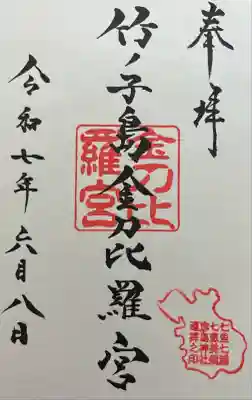 奉拝
竹ノ子島金刀比羅宮
令和七年六月八日
金刀比
羅宮